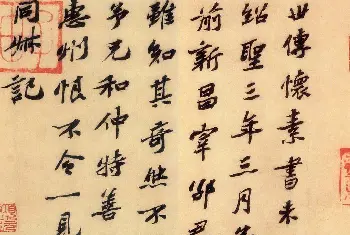 世傳懷素書未
紹聖三年三月
前新昌宰邵君
雖知其奇然不
予兄和仲特善
惠州恨不令一見
同叔記